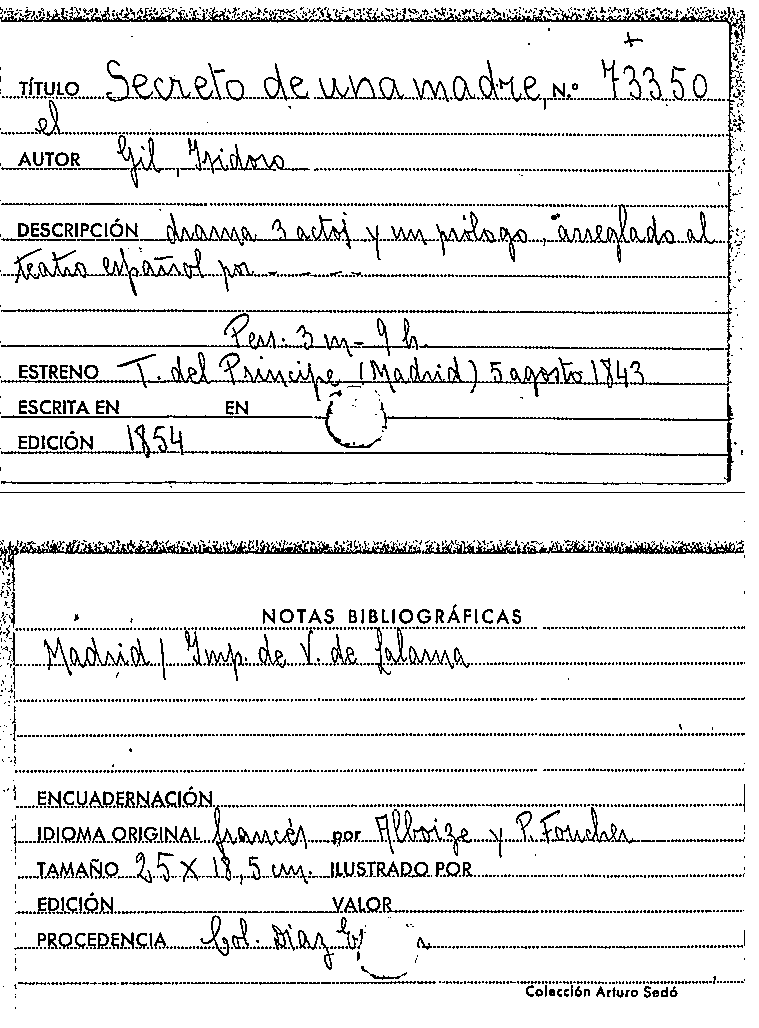 +
TÍTULO Secreto de una madre, N.º 73350
el
AUTOR Gil, Isidoro
DESCRIPCIÓN drama 3 actos y un prólogo, "arreglado al
teatro español por - - - -
Pers: 3 m - 9 h.
ESTRENO T. del Principe (Madrid) 5 agosto 1843
ESCRITA EN EN
EDICIÓN 1854
NOTAS BIBLIOGRÁFICAS
Madrid / Imp. de V. de Lalama
ENCUADERNACIÓN
IDIOMA ORIGINAL francés por Alboize y P. Foucher
TAMAÑO 25 X 18,5 cm. ILUSTRADO POR
EDICIÓN VALOR
PROCEDENCIA Col. Díaz
Colección Arturo Sedó